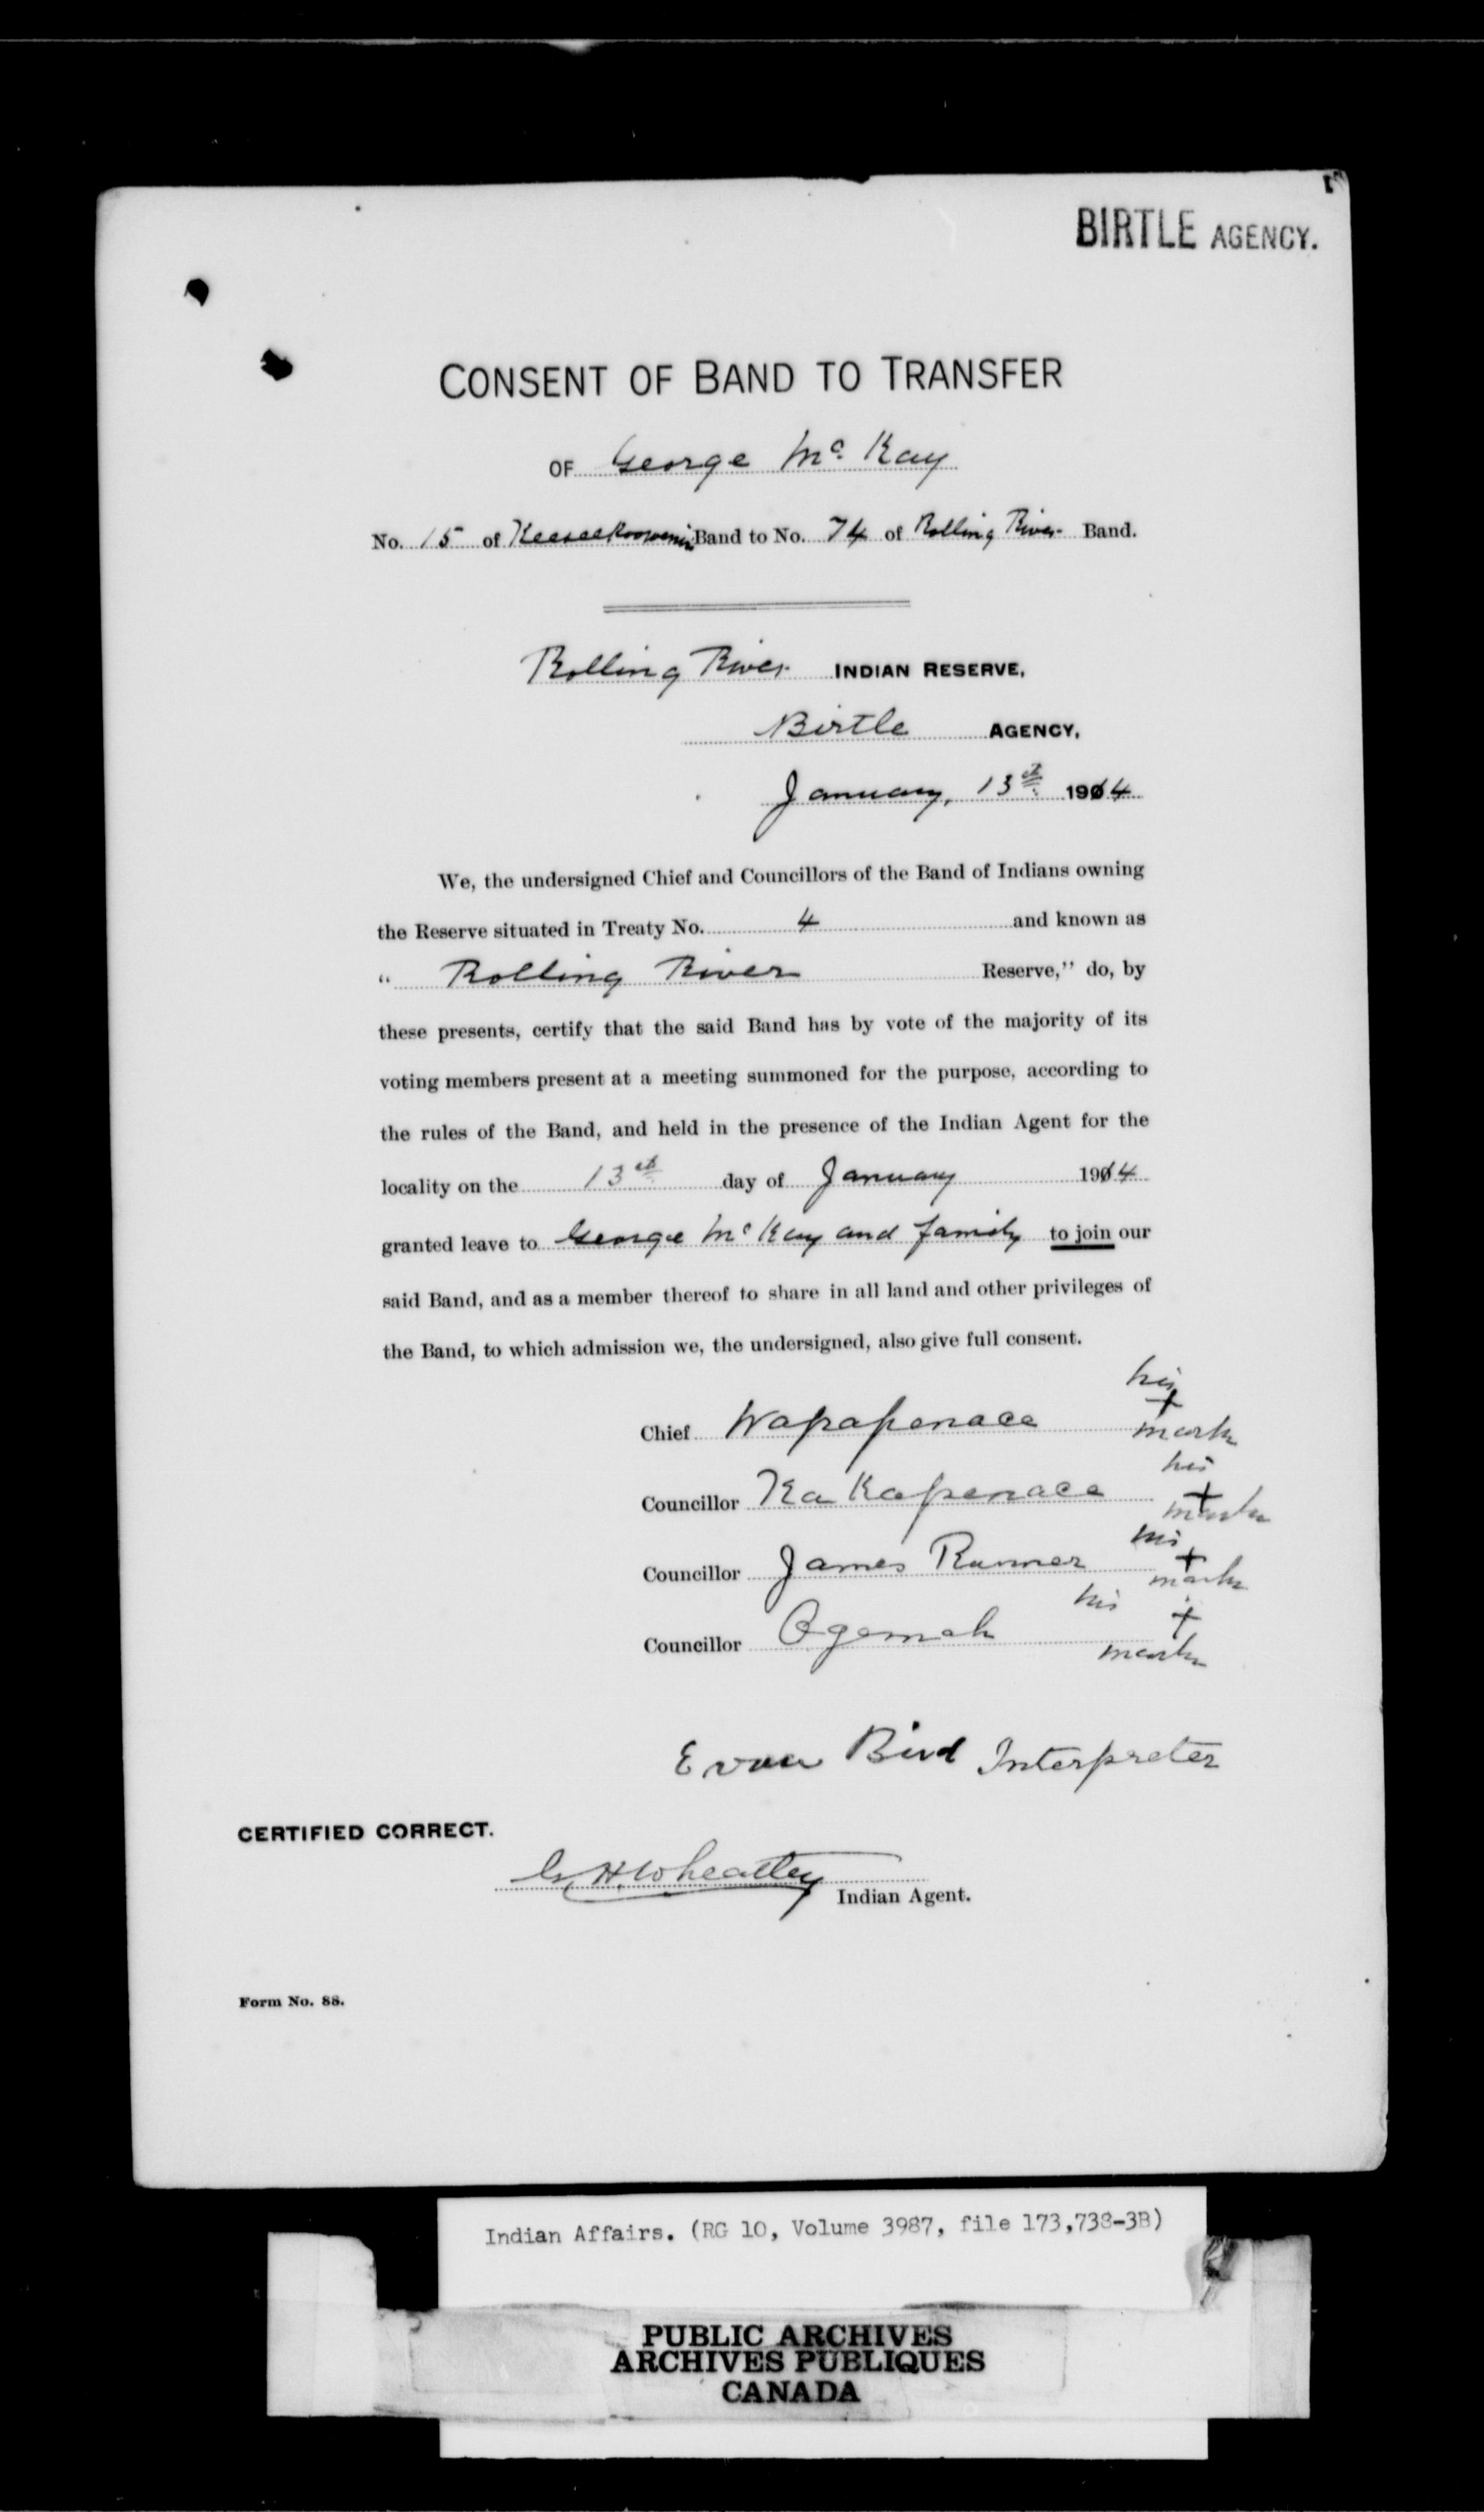 BIRTLE AGENCY.
CONSENT OF BAND TO TRANSFER
OF George Mc Kay
No. 15 of Keeseekoowenin Band to No. 74 of Rolling River Band.
Rolling River INDIAN RESERVE,
Birtle AGENCY,
January, 13th 1914
We, the undersigned Chief and Councillors of the Band of Indians owning
the Reserve situated in Treaty No. 4 and known as
" Rolling River Reserve," do, by
these presents, certify that the said Band has by vote of the majority of its
voting members present at a meeting summoned for the purpose, according to
the rules of the Band, and held in the presence of the Indian Agent for the
locality on the 13th day of January 1914
granted leave to George Mc Kay and family to join our
said Band, and as a member thereof to share in all land and other privileges of
the Band, to which admission we, the undersigned, also give full consent.
his
Chief Wapapenace + mark
his
Councillor Ka Kapenace + mark
his
Councillor James Runner + mark
his +
Councillor Ogemah mark
Evan Bird Interpreter
CERTIFIED CORRECT.
G H. Wheatley
Indian Agent.
Form No. 88.
Indian Affairs. (RG 10, Volume 3987, file 173,738-3B)
PUBLIC ARCHIVES
ARCHIVES PUBLIQUES
CANADA